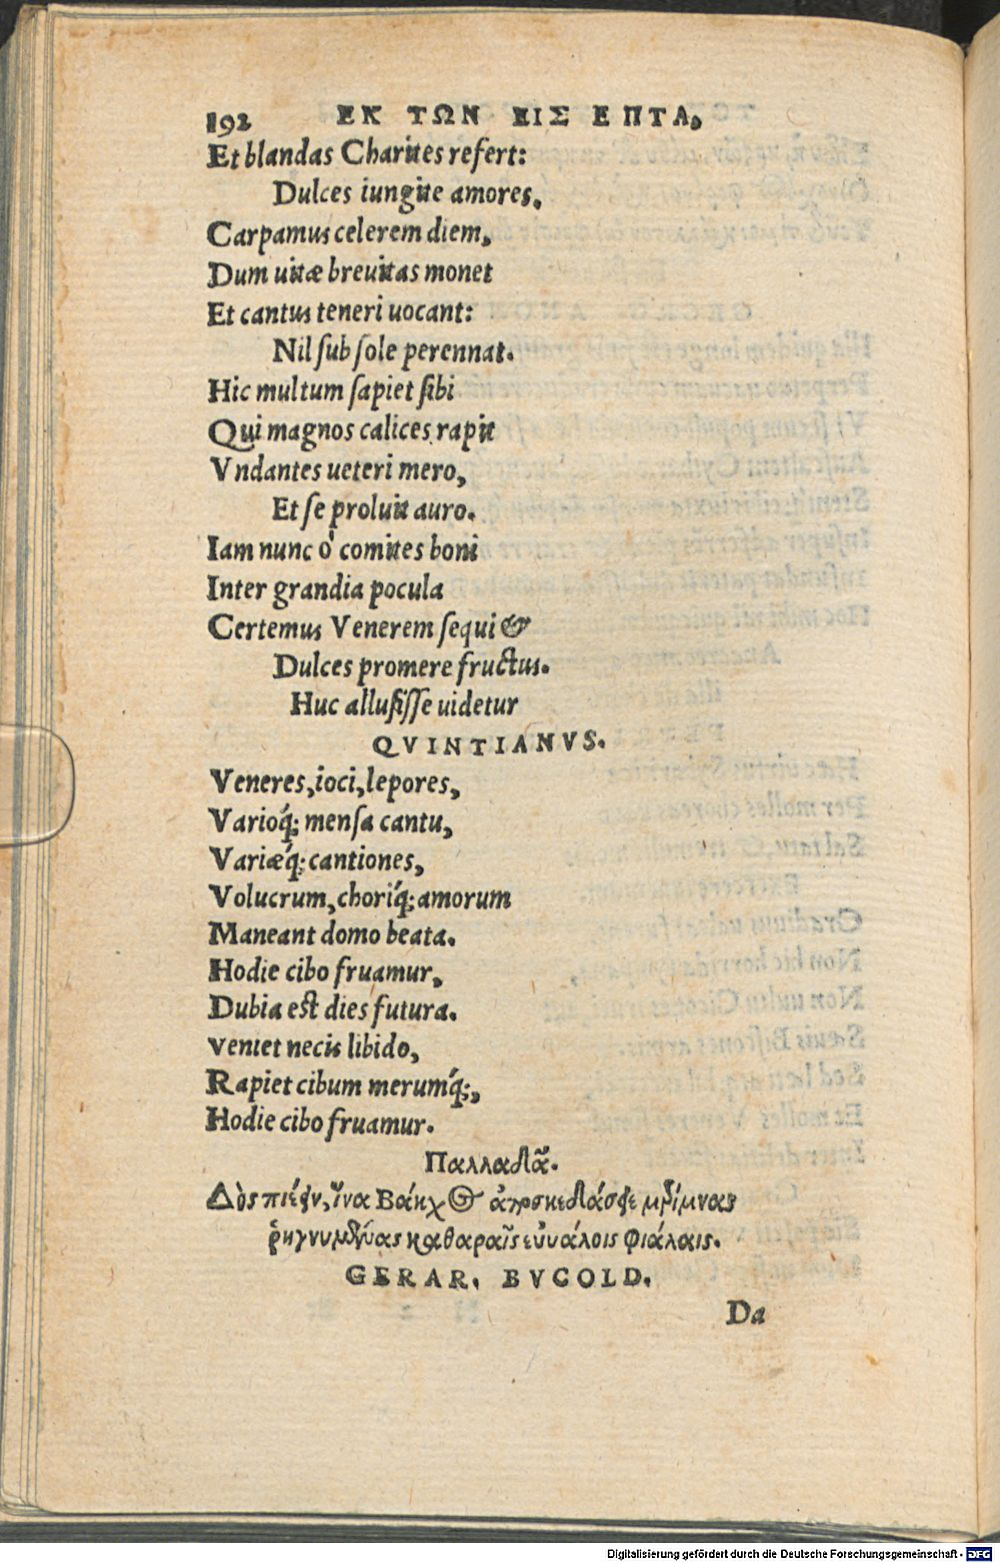 192 ΕΚ ΤΩΝ ΕΙΣ ΕΠΤΑ,
Et blandas Charites refert:
Dulces iungite amores.
Carpamus celerem diem,
Dum uitæ breuitas monet
Et cantus teneri uocant:
Nil sub sole perennat.
Hic multum sapiet sibi
Qui magnos calices rapit
Vndantes ueteri mero,
Et se proluit auro.
Iam nunc ô comites boni
Inter grandia pocula
Certemus Venerem sequi &
Dulces promere fructus.
Huc allusisse uidetur
QVINTIANVS.
Veneres, ioci, lepores,
Varioq́; mensa cantu,
Variæq́; cantiones,
Volucrum, choriq́; amorum
Maneant domo beata.
Hodie cibo fruamur,
Dubia est dies futura.
veniet necis libido,
Rapiet cibum merumq́;,
Hodie cibo fruamur.
Παλλαδᾶ.
Δὸς πιέειν, ἵνα Βάκχος ἀποσκεδάσειε μερίμνας
ῥηγνυμένας καθαραῖς εὐυάλοις φιάλαις.
GERAR. BVCOLD.
Da
Digitalisierung gefördert durch die Deutsche Forschungsgemeinschaft - DFG